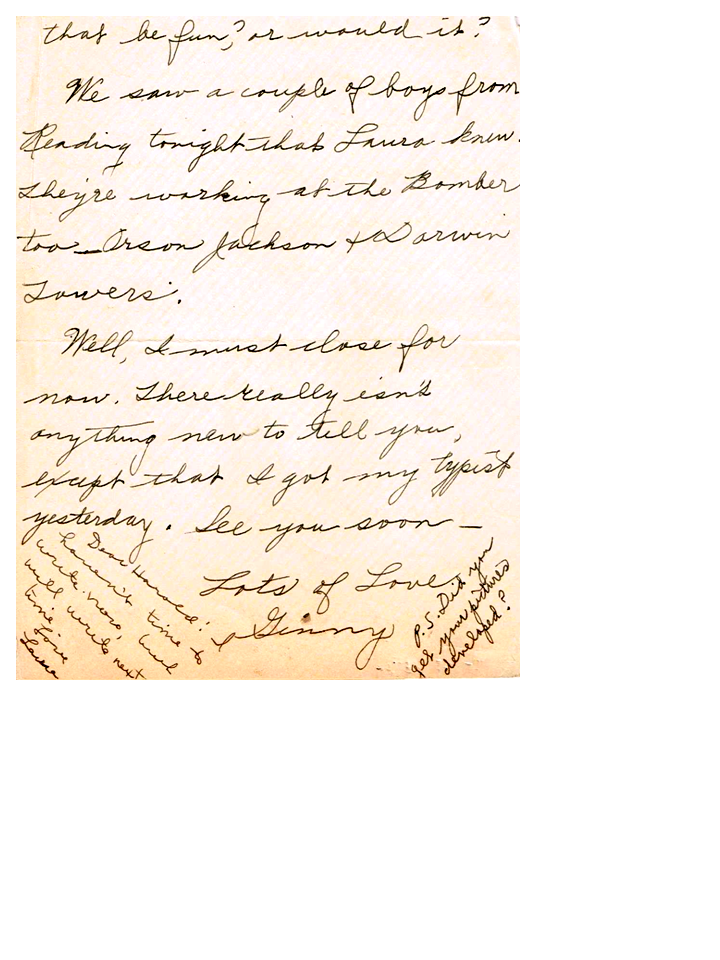 that be fun, or would it?
We saw a couple of boys from
Reading tonight that Laura knew.
They're working at the Bomber
too — Orson Jackson & Darwin
Lowers'.
Well, I must close for
now. There really isn't
anything new to tell you,
except that I got my typist
yesterday. See you soon —
Lots of Love,
Ginny
Dear Harold:
haven't time to
write now, but
will write next
time. Love
Laura
P.S. Did you
get your pictures
developed?